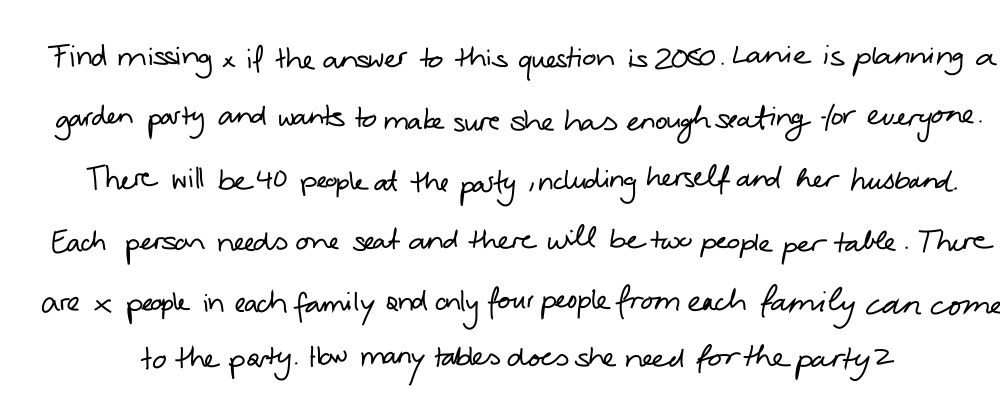 Find missing x if the answer to this question is 2060. Lanie is planning a
garden party and wants to make sure she has enough seating for everyone.
There will be 40 people at the party, including herself and her husband.
Each person needs one seat and there will be two people per table. There
are x people in each family and only four people from each family can come
to the party. How many tables does she need for the party?